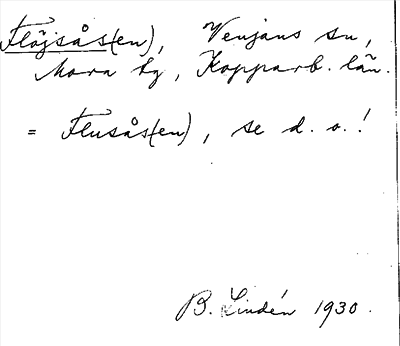 Flöjsås(en), Venjans sn,
Mora tg, Kopparb. län.
= Flusås(en), se d. o.!
B. Lindén 1930.